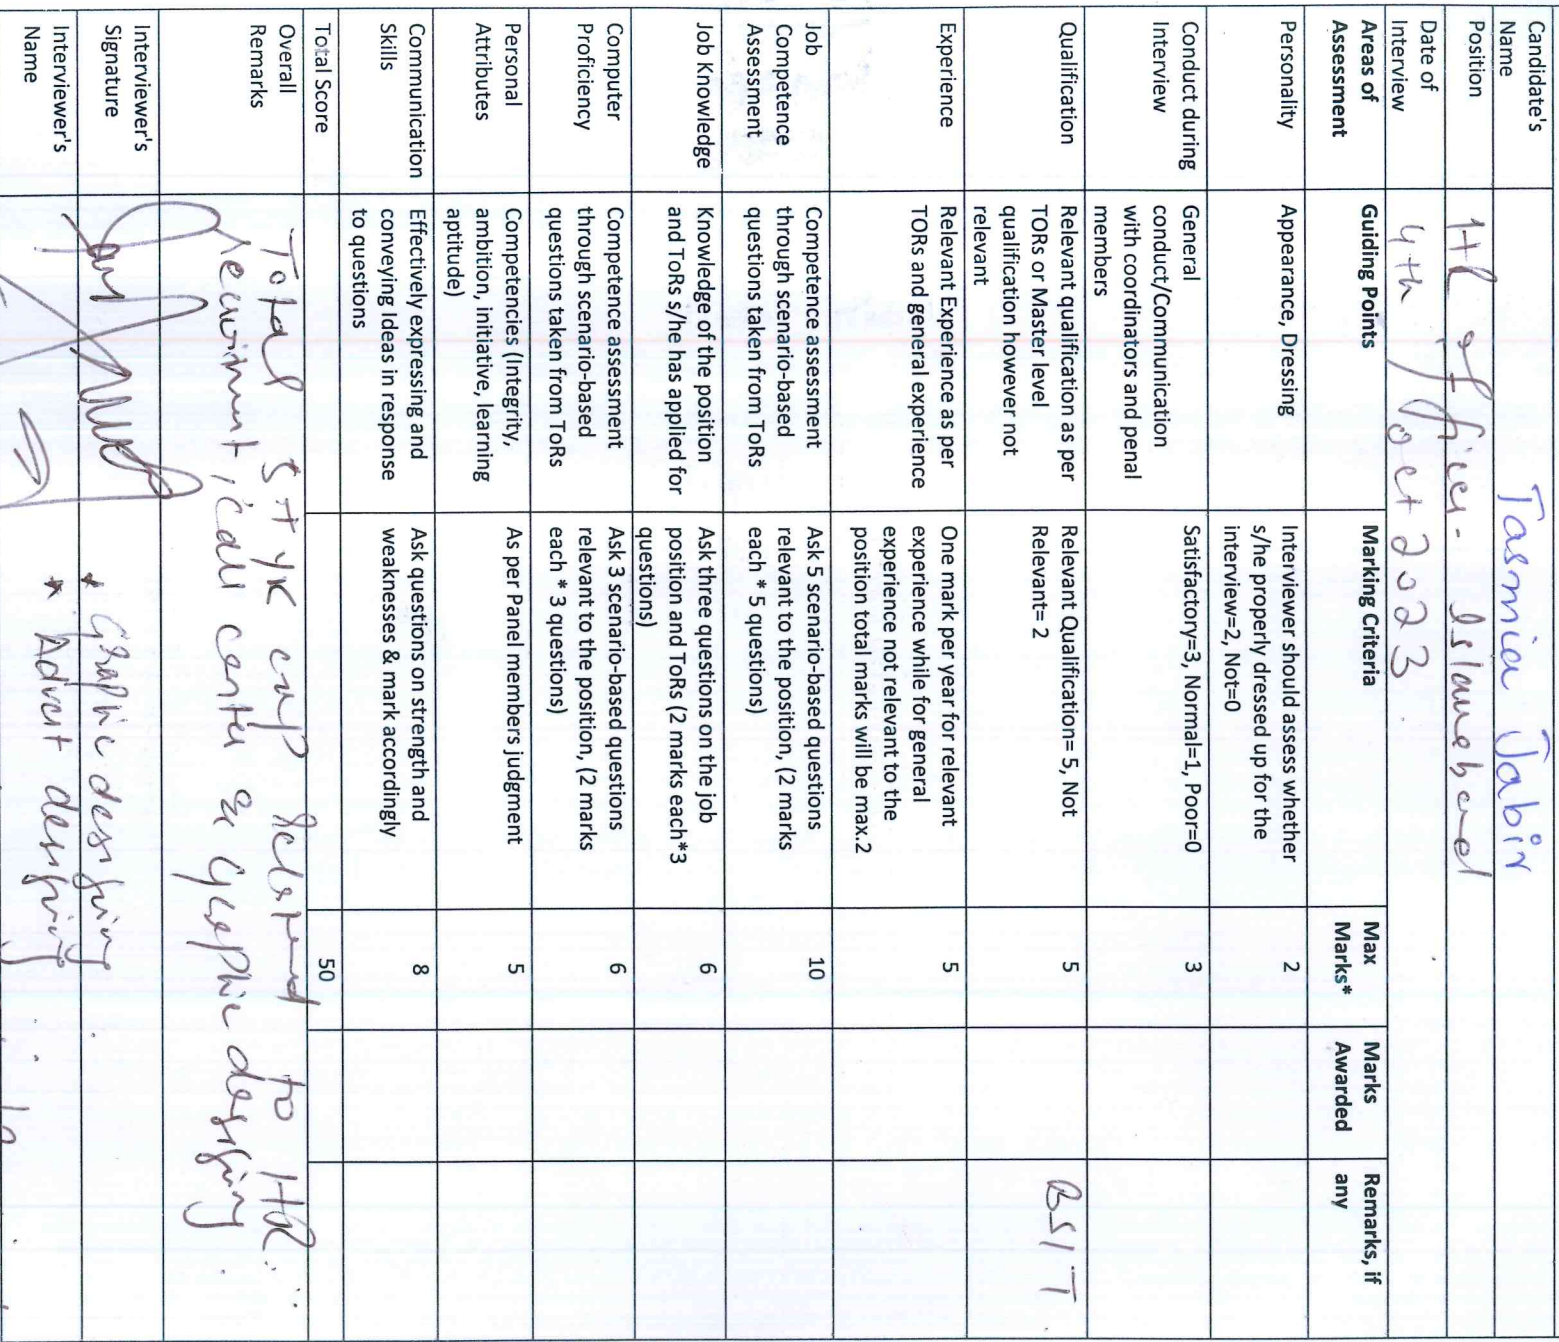 Candidate's
Name
Tasmia Jabin
Position
HR officer - Islamabad
Date of
Interview
4th /Oct 2023
Areas of
Assessment
Guiding Points
Marking Criteria
Max
Marks*
Marks
Awarded
Remarks, if
any
Personality
Appearance, Dressing
Interviewer should assess whether
s/he properly dressed up for the
interview=2, Not=0
2
Conduct during
Interview
General
conduct/Communication
with coordinators and penal
members
Satisfactory=3, Normal=1, Poor=0
3
Qualification
Relevant qualification as per
TORs or Master level
qualification however not
relevant
Relevant Qualification= 5, Not
Relevant= 2
5
BSIT
Experience
Relevant Experience as per
TORs and general experience
One mark per year for relevant
experience while for general
experience not relevant to the
position total marks will be max.2
5
Job
Competence
Assessment
Competence assessment
through scenario-based
questions taken from ToRs
Ask 5 scenario-based questions
relevant to the position, (2 marks
each * 5 questions)
10
Job Knowledge
Knowledge of the position
and ToRs s/he has applied for
Ask three questions on the job
position and ToRs (2 marks each*3
questions)
6
Computer
Proficiency
Competence assessment
through scenario-based
questions taken from ToRs
Ask 3 scenario-based questions
relevant to the position, (2 marks
each * 3 questions)
6
Personal
Attributes
Competencies (Integrity,
ambition, initiative, learning
aptitude)
As per Panel members judgment
5
Communication
Skills
Effectively expressing and
conveying ideas in response
to questions
Ask questions on strength and
weaknesses & mark accordingly
8
Total Score
50
Overall
Remarks
Total 5+ yr exp related to HR
call center & graphic desging
Interviewer's
Signature
* Graphic desgining
Interviewer's
Name
* Advert desgining